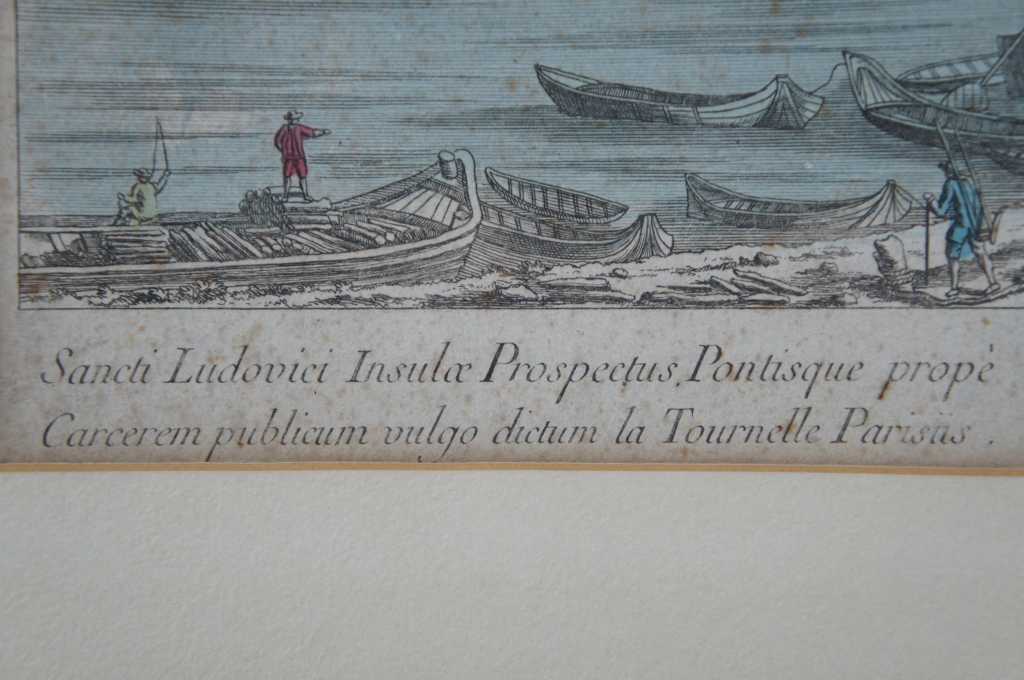 Sancti Ludovici Insulæ Prospectus, Pontisque propè
Carcerem publicum vulgo dictum la Tournelle Parisiis.